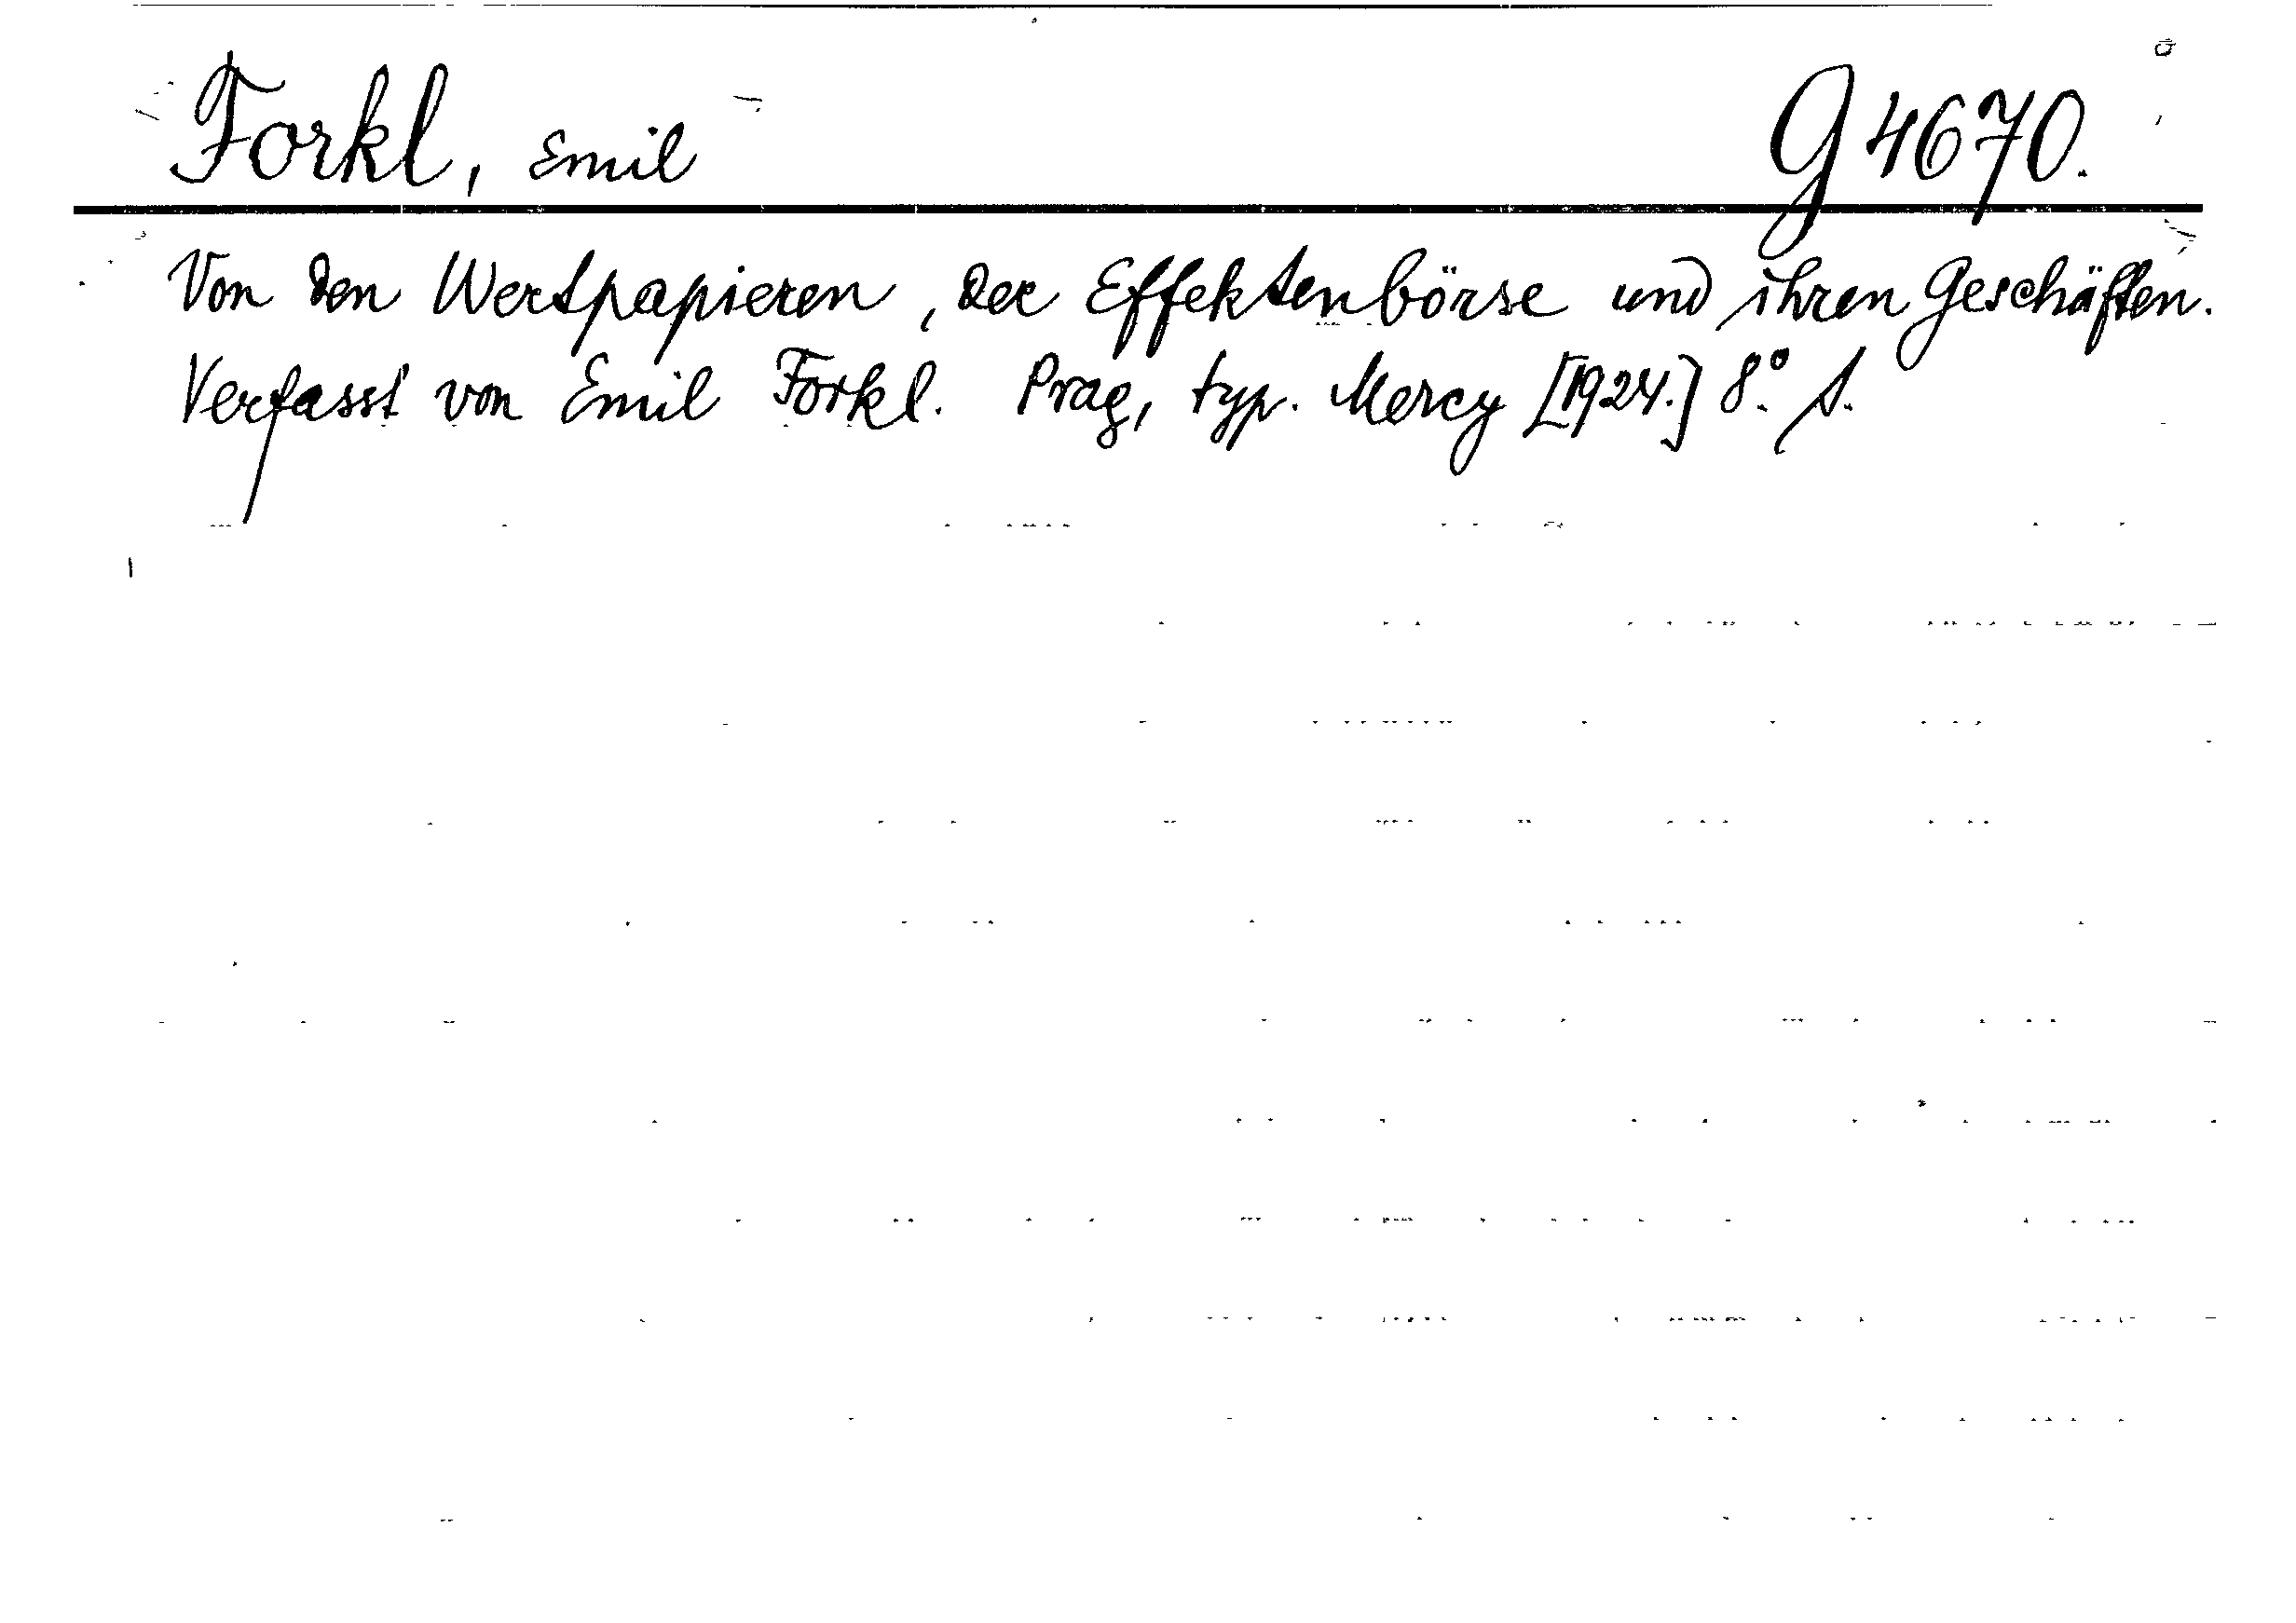 Forkl, Emil G 4670.
Von den Wertpapieren, der Effektenbörse und ihren Geschäften.
Verfasst von Emil Forkl. Prag, typ. Mercy [1924.] 8°. A.